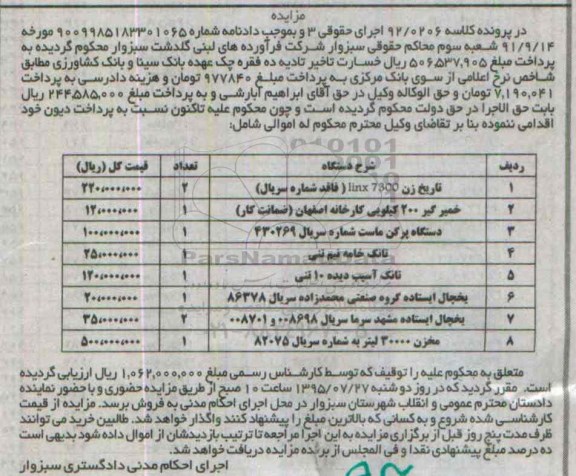 مزایده
در پرونده کلاسه ۹۲/۰۲۰۶ اجرای حقوقی ۳ و بموجب دادنامه شماره ۹۰۰۹۹۸۵۱۸۳۳۰۱۰۶۵ مورخه
۹۱/۹/۱۴ شعبه سوم محاکم حقوقی سبزوار شرکت فرآورده های لبنی گلدشت سبزوار محکوم گردیده به
پرداخت مبلغ ۵۰۶۵۳۷,۹۰۵ ریال خسارت تاخیر تادیه ده فقره چک عهده بانک سینا و بانک کشاورزی مطابق
شاخص نرخ اعلامی از سوی بانک مرکزی به پرداخت مبلغ ۹۷۷۸۴۰ تومان و هزینه دادرسی به پرداخت
۷,۱۹۰,۰۴۱ تومان و حق الوکاله وکیل در حق آقای ابراهیم آبارشی و به پرداخت مبلغ ۲۴۴۵۸۵,۰۰۰ ریال
بابت حق الاجرا در حق دولت محکوم گردیده است و چون محکوم علیه تاکنون نسبت به پرداخت دیون خود
اقدامی ننموده بنا بر تقاضای وکیل محترم محکوم له اموالی شامل:
ردیف شرح دستگاه تعداد قیمت کل (ریال)
۱ تاریخ زن linx 7300 ( فاقد شماره سریال) ۲ ۲۲۰،۰۰۰،۰۰۰
۲ خمیر گیر ۲۰۰ کیلویی کارخانه اصفهان (ضمانت کار) ۱ ۱۲،۰۰۰،۰۰۰
۳ دستگاه پرکن ماست شماره سریال ۴۳۰۲۶۹ ۱ ۱۰۰،۰۰۰،۰۰۰
۴ تانک خامه نیم تنی ۱ ۲۵،۰۰۰،۰۰۰
۵ تانک آسیب دیده ۱۰ تنی ۱ ۱۲۰،۰۰۰،۰۰۰
۶ یخچال ایستاده گروه صنعتی محمدزاده سریال ۸۶۳۷۸ ۱ ۲۰،۰۰۰،۰۰۰
۷ یخچال ایستاده مشهد سرما سریال ۰۰۸۶۹۸ و ۰۰۸۷۰۱ ۲ ۳۵،۰۰۰،۰۰۰
۸ مخزن ۳۰۰۰۰ لیتر به شماره سریال ۸۲۰۷۵ ۱ ۵۰۰،۰۰۰،۰۰۰
ParsNamadData
متعلق به محکوم علیه را توقیف که توسط کارشناس رسمی مبلغ ۱,۰۶۲,۰۰۰,۰۰۰ ریال ارزیابی گردیده
است. مقرر گردید که در روز دو شنبه ۱۳۹۵/۰۷/۲۷ ساعت ۱۰ صبح از طریق مزایده حضوری و با حضور نماینده
دادستان محترم عمومی و انقلاب شهرستان سبزوار در محل اجرای احکام مدنی به فروش برسد. مزایده از قیمت
کارشناسی شده شروع و به کسانی که بالاترین مبلغ را پیشنهاد کنند واگذار خواهد شد. طالبین خرید می توانند
ظرف مدت پنج روز قبل از برگزاری مزایده به این اجرا مراجعه تا ترتیب بازدیدشان از اموال داده شود بدیهی است
ده درصد مبلغ پیشنهادی نقدا و فی المجلس از برنده مزایده دریافت خواهد شد.
اجرای احکام مدنی دادگستری سبزوار